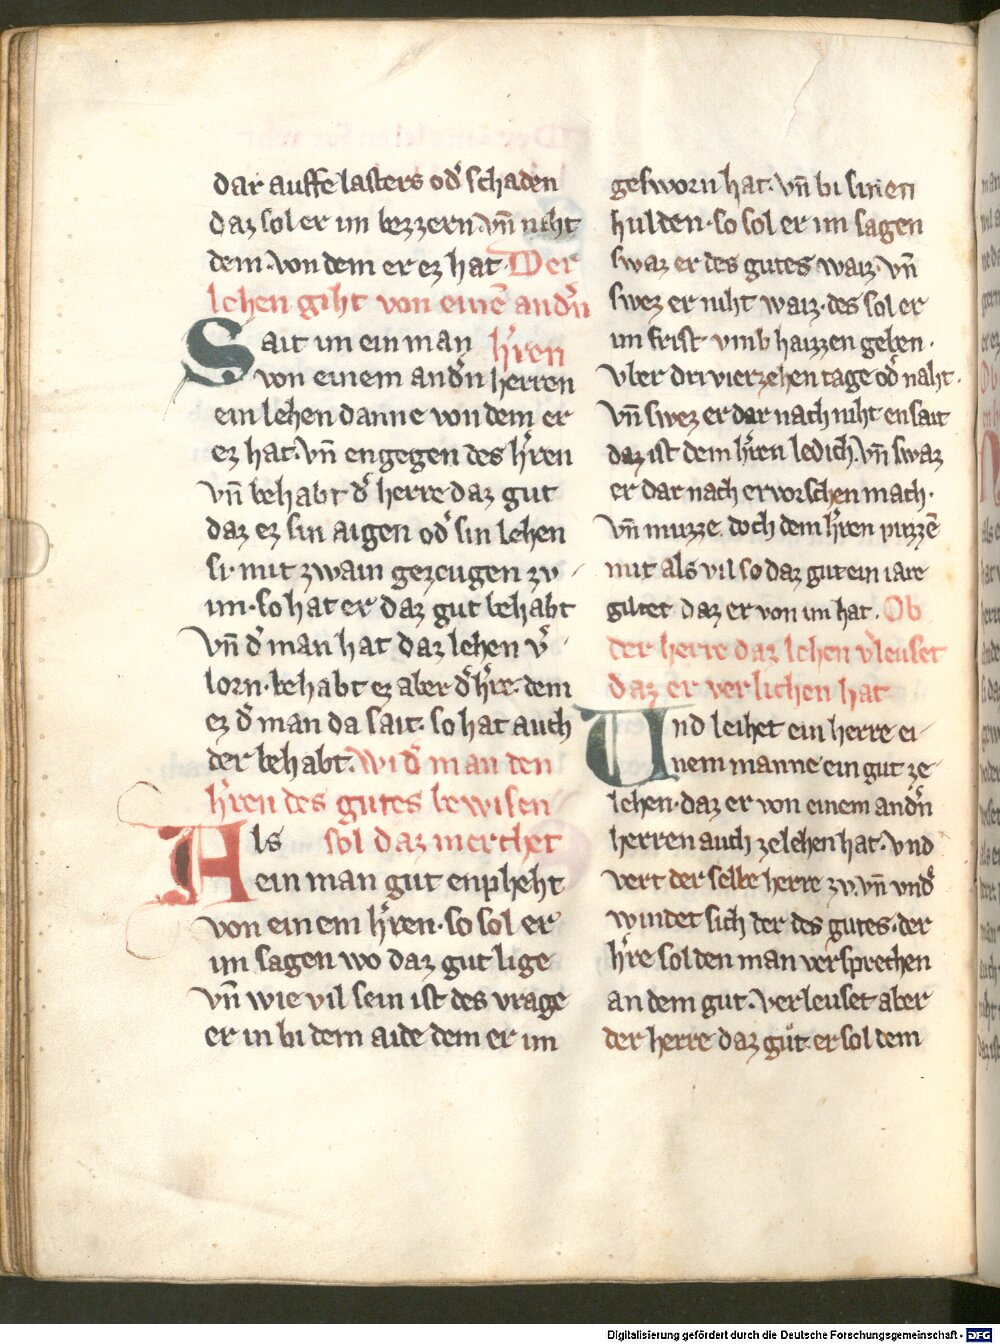 dar auffe lasters od᷎ schaden
daz sol er im bezzern. vn̄ niht
dem. von dem er ez hat. Der
lehen giht von einē and᷎n
Sait im ein man h᷎ren
von einem and᷎n herren
ein lehen danne von dem er
ez hat. vn̄ engegen des h᷎ren
vn̄ behabt d᷎ herre daz gut
daz ez sin aigen od᷎ sin lehen
si. mit zwain gezeugen zv
im. so hat er daz gut behabt
vn̄ d᷎ man hat daz lehen v᷎
lorn. behabt ez aber d᷎ h᷎re. dem
ez d᷎ man da sait. so hat auch
der behabt. Wi d᷎ man den
h᷎ren des gutes bewisen
Als sol daz merchet
ein man gut enpheht
von einem h᷎ren. so sol er
im sagen wo daz gut lige
vn̄ wie vil sein ist des vrage
er in bi dem aide dem er im
gesworn hat. vn̄ bi sinen
hulden. so sol er im sagen
swaz er des gutes waiz. vn̄
swez er niht waiz. des sol er
im frist vmb haizzen geben.
vber dri vierzehen tage od᷎ naht.
vn̄ swez er dar nach niht ensait
daz ist dem h᷎ren ledich. vn̄ swaz
er dar nach ervorschen mach.
vn̄ muzze doch dem h᷎ren puzzē
mit als vil so daz gut ein iare
gultet daz er von im hat. Ob
der herre daz lehen v᷎leuset
daz er verlichen hat
Und leihet ein herre ei-
nem manne ein gut ze-
lehen. daz er von einem and᷎n
herren auch zelehen hat. vnd
vert der selbe herre zv. vn̄ vnd᷎
windet sich der des gutes. der
h᷎re sol den man versprechen
an dem gut. verleuset aber
der herre daz gůt. er sol dem
Digitalisierung gefördert durch die Deutsche Forschungsgemeinschaft - DFG